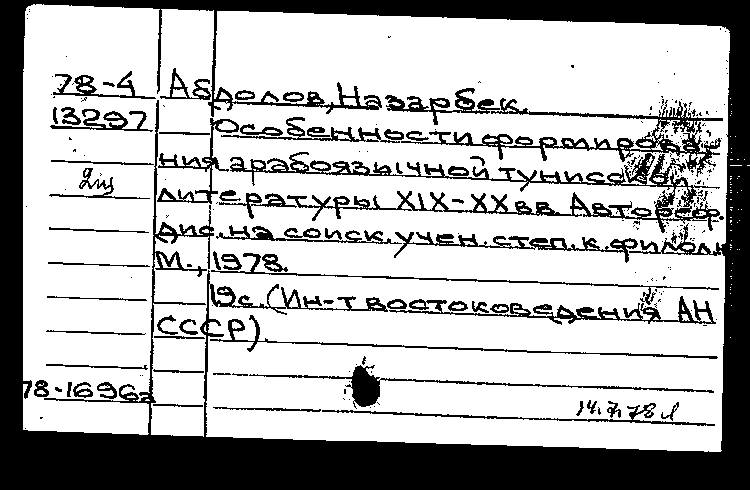 78-4 Абдолов, Назарбек.
13297 Особенности формирова-
ния арабоязычной тунисской
литературы XIX-XX вв. Автореф.
дис. на соиск. учен. степ. к. филол. н.
М., 1978.
19с. (Ин-т востоковедения АН
СССР).
78-16962
14.7.78